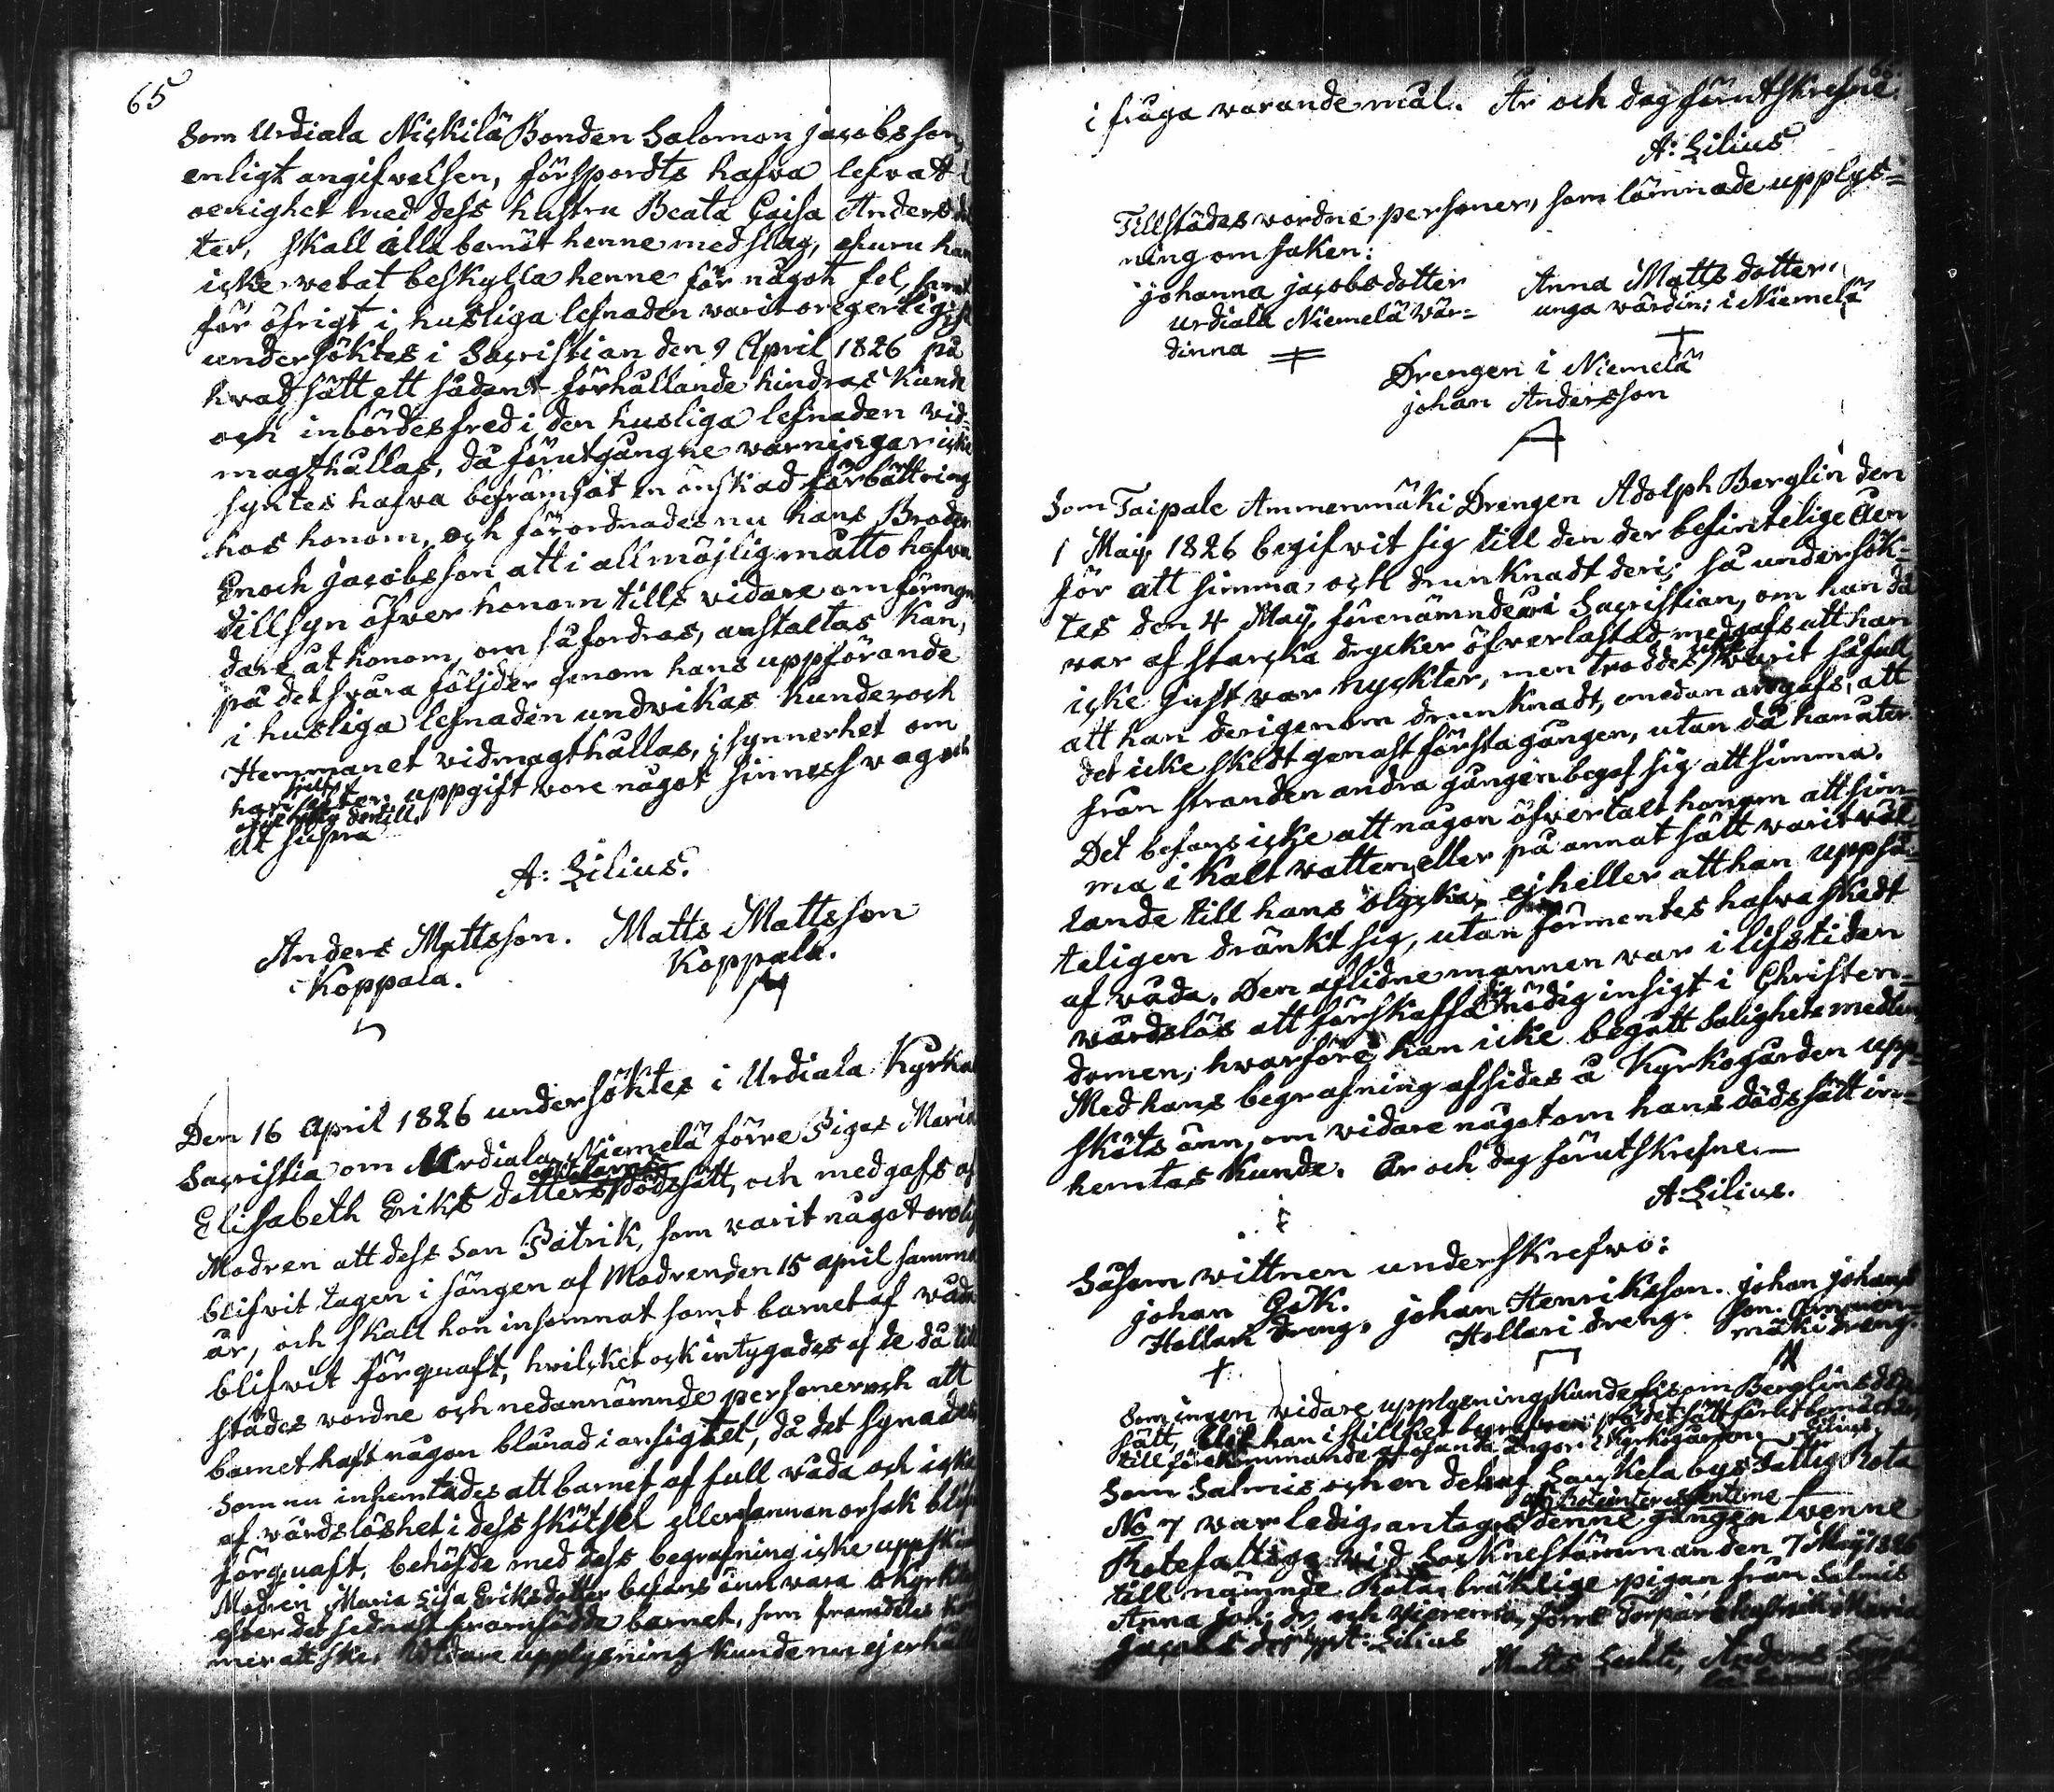 65
Som Urdiala Nickilä Bonden Salomon Jacobsson,
enligt angifvelsen, försports hafva lefvat i
oenighet med dess hustru Beata Caisa Andersdot
ter, skall illa bemöt henne med slag, ehuru han
icke vetat beskylla henne för något fel, samt
för öfrigt i husliga lefnaden varit oregerlig; så
undersöktes i Sacristian den 9 April 1826 på
hvad sätt ett sådant förhållande hindras kunde
och inbördes fred i den husliga lefnaden vid-
magthållas, då förutgångne varningar icke
syntes hafva befrämjat en önskad förbättring
hos honom, och förordnades nu hans Broder
Enoch Jacobsson att i all möjlig måtto hafva
tillsyn öfver honom tills vidare om förmyn
dare åt honom, om så fordras, anstaltas kan,
på det svåra följder genom hans uppförande
i husliga lefnaden undvikas kunde, och
Hemmanet vidmagthållas, i synnerhet om
han efter uppgift vore något sinnessvag och
dertill.
Ut supra
A: Lilius.
Anders Mattsson. Matts Mattsson
Koppala. Koppala.
Den 16 April 1826 undersöktes i Urdiala Kyrkas
Sacristia om Urdiala Niemelä förre Pigas Maria
Elisabeth Eriks dotters dödssätt, och medgafs af
Modren att dess Son Patrik, som varit något orolig
blifvit tagen i sängen af Modren den 15 april samma
år, och skall hon insomnat samt barnet af våda
blifvit förqvaft, hvilket ock intygades af de då till
städes vordne och nedannämnde personer och att
barnet haft någon blånad i ansigtet, då det synades
Som nu inhemtades att barnet af full våda och icke
af vårdslöshet i dess skötsel eller annan orsak blifvit
förqvaft, behöfde med dess begrafning icke uppskjutas
Modren Maria Lisa Eriksdotter befans ännu vara okyrktagen
efter det sednast framfödde barnet, som framdeles kom
mer att ske. Vidare upplysning kunde nu ej erhållas
i fråga varande mål. År och dag förutskrefne.
A: Lilius
Tillstädes vordne personer, som lämnade upplys-
ning om saken:
Johanna Jacobsdotter Anna Matts dotter
Urdiala Niemelä vär- unga värdin: i Niemelä
dinna
Drengen i Niemelä
Johan Andersson
Som Taipale Ammenmäki Drengen Adolph Berglin den
1 Maij 1826 begifvit sig till den der befintelige åen
för att simma och drunknadt deri; så undersök-
tes den 4 Maij förenämnde år i Sacristian, om han då
var af starcka drycker öfverlastad, medgafs att han
icke just var nyckter, men troddes icke varit så full
att han derigenom drunknadt, emedan angafs, att
det icke skedt genast första gången, utan då han åter
från stranden andra gången begaf sig att simma.
Det befans icke att någon öfvertalt honom att sim-
ma i kalt vatten, eller på annat sätt varit vål-
lande till hans olycka, ej heller att han uppså-
teligen dränkt sig, utan förmentes hafva skedt
af våda. Den aflidne mannen var i lifstiden
vårdslös att förskaffa sig nödig insigt i Christen-
domen, hvarföre han icke begått Salighetsmedlen,
Med hans begrafning afsides å Kyrkogården upp-
sköts änn, om vidare något om hans dödssätt in-
hemtas kunde. År och dag förutskrefne.—
A: Lilius.
Såsom vittnen underskrefvo:
Johan Gök. Johan Henriksson. Johan Johans
Hollari Dreng. Hollari dreng. son Ammen-
mäki dreng.
Som ingen vidare upplysning kunde fås om Berglins döds
sätt, blef han i stillhet begrafven på det sätt
till förekommande af Kyrkogården. Lilius.
Som Salmis och en del af Saukela bys Fattig Rota
af Roteintressenterne
No 7 var ledig, antogs denne gången tvenne
Rotefattige vid Socknestämman den 7 Maij 1826
till nämnde Rota, bräklige pigan från Salmis
Anna Joh: dr och förre Torpare hustrun Maria
Jacobs dr Lilius
Matts Anders